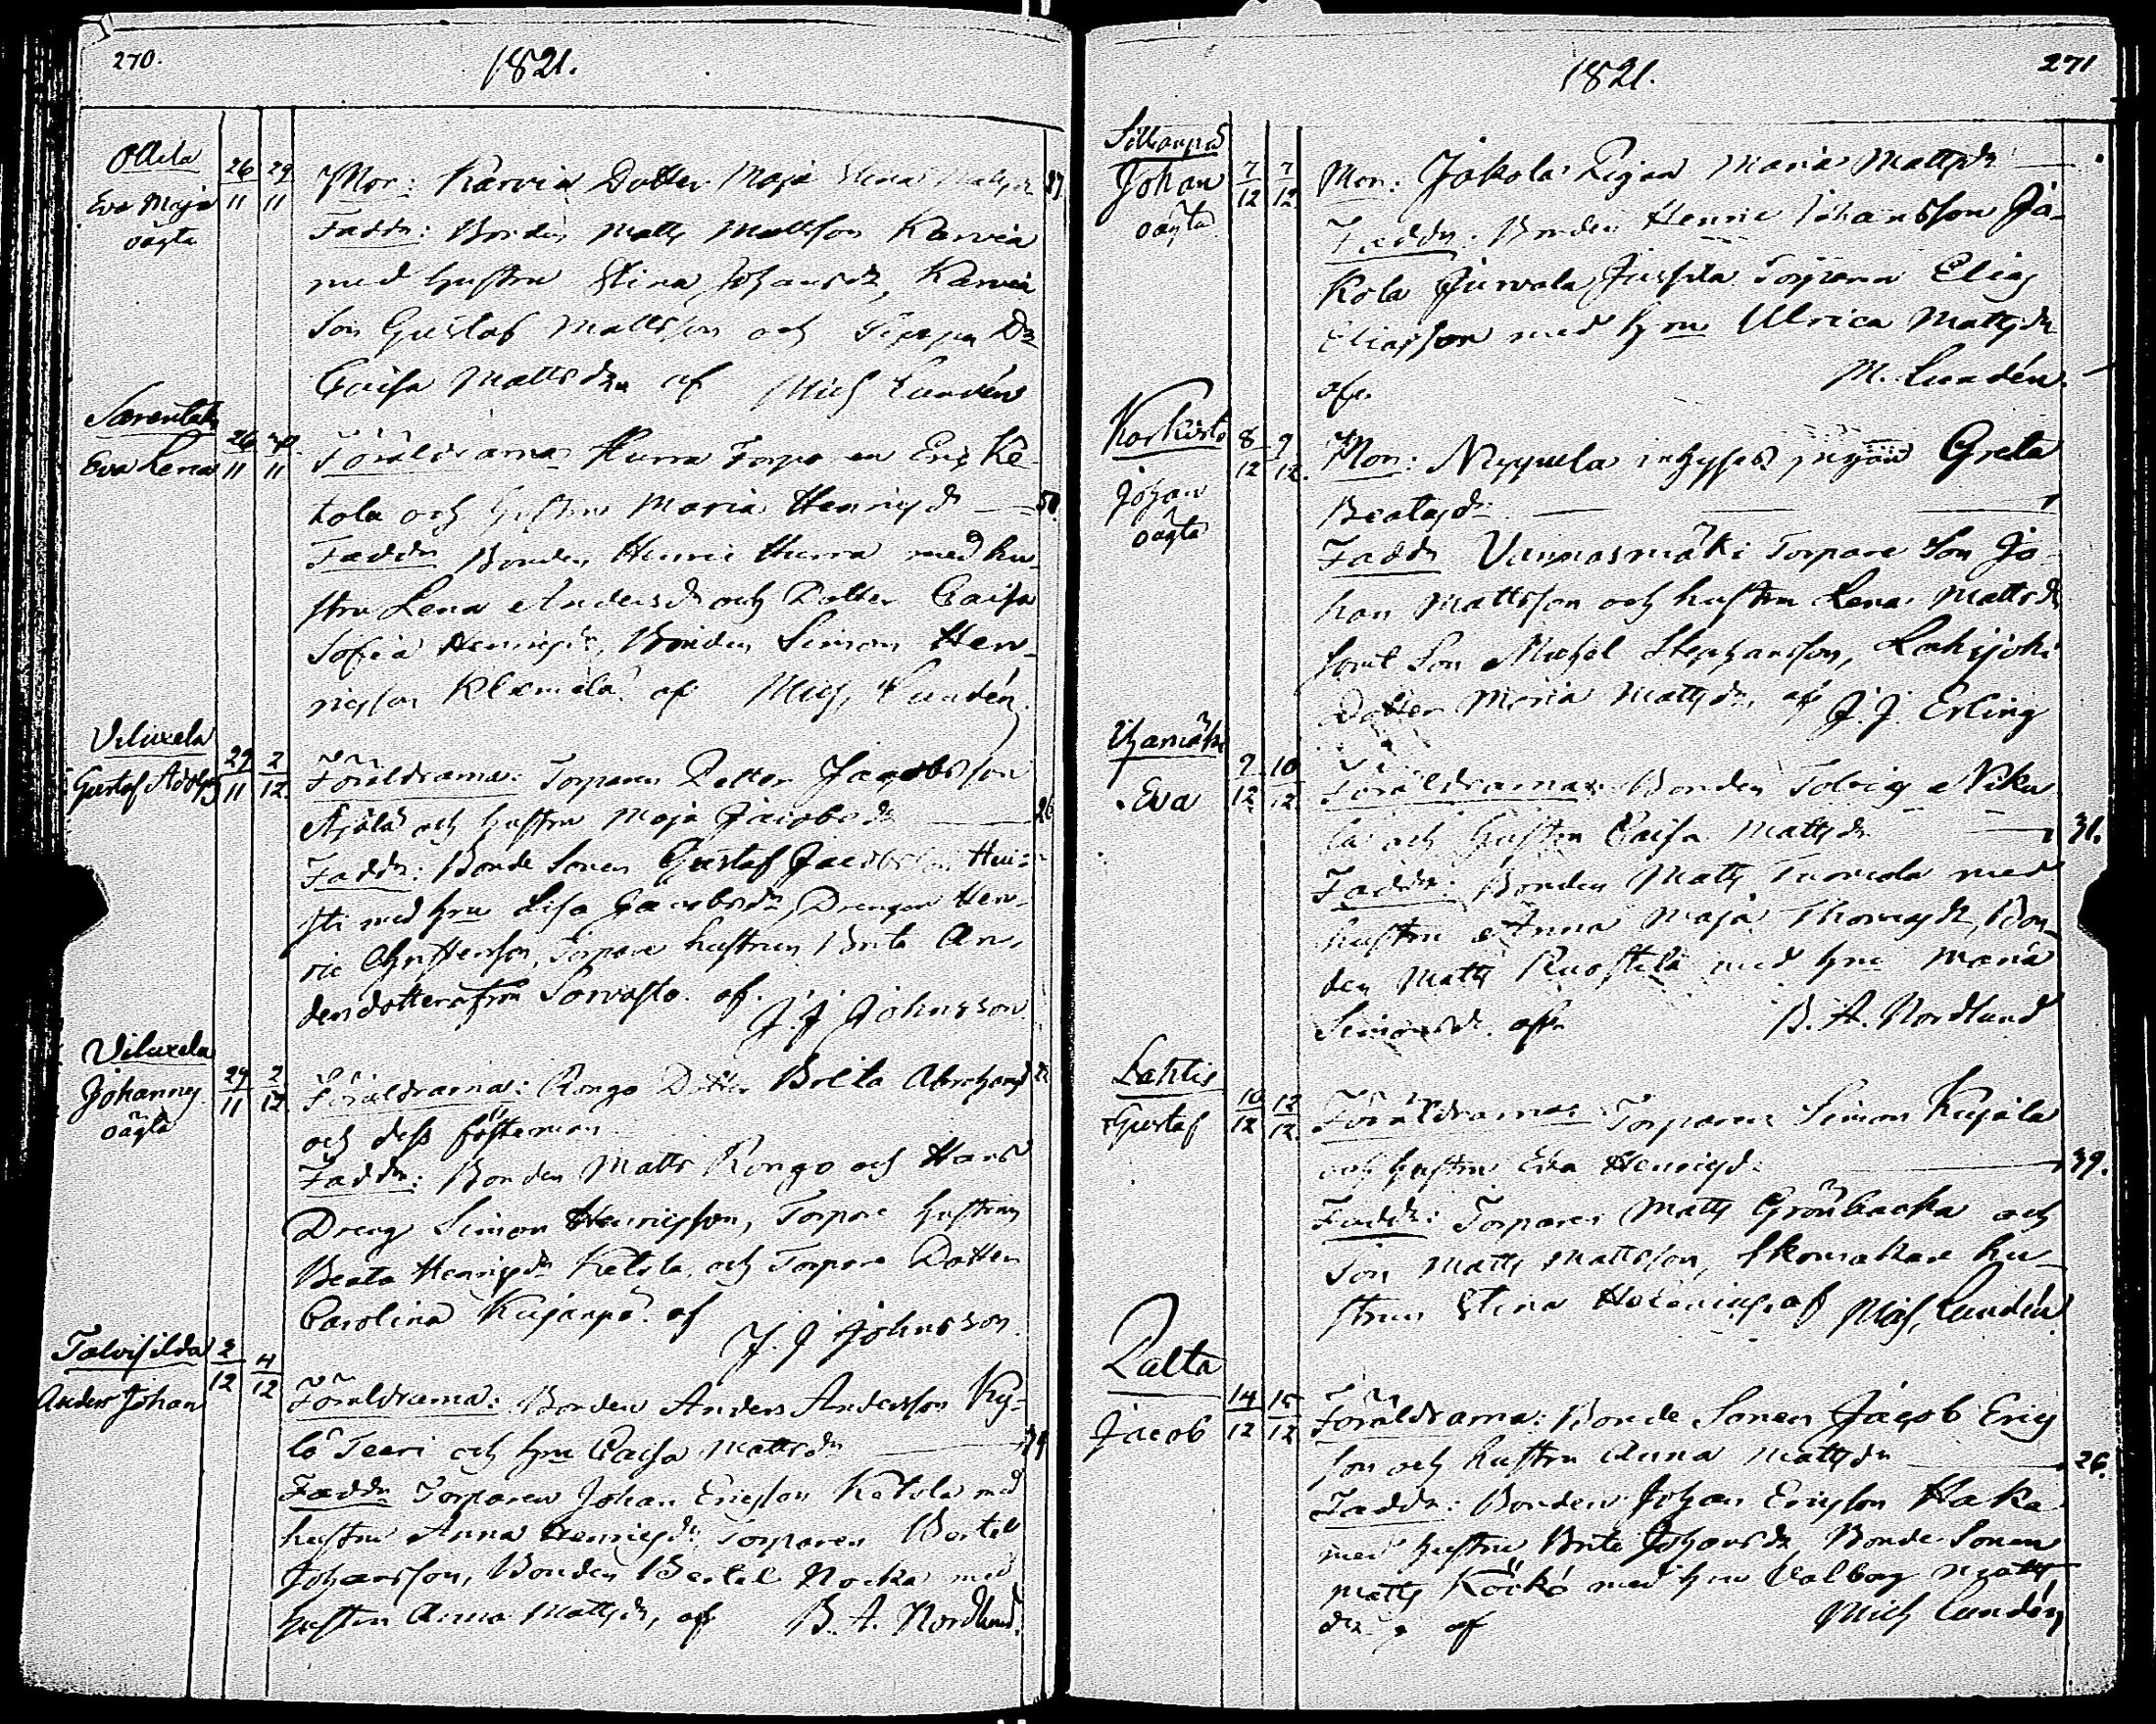 270.
1821.
Ollila
Eva Maja
oägta
26/11 29/11
Mor: Karvia Dotter Maja Stina
Faddr: Bonden Matts Mattsson Karvia
med hustru Stina Johansdr, Karvia
Son Gustaf Mattsson och Dr
Caisa Mattsdr af Mich Lundén
Eva Lena
26/11
Föräldrarna: Hurra Torparen Eric Ke-
tola och hustru Maria Henricsdr
Faddr Bonden Henric Hurra med hu-
stru Lena Andersdr och Dotter Caisa
Sofia Henricsdr, Bonden Simon Hen-
ricsson Klemelä af Mich, Lundén
Viluxela
Gustaf Adolph
29/11 2/12
Föräldrarna: Torparen Petter Jacobsson
och hustru Maja Jacobsdr 26
Faddr: Bonde Sonen Gustaf Jacobsson
med hru Lisa Jacobsdr, Drengen Hen-
ric Christersson, Torpare hustrun Brita An-
dersdotter från Sorvasto. af.
J. J. Johnsson
Viluxela
Johannes
oägta
29/11 2/12
Föräldrarna: Rongo Dotter Brita Abrahamsd
och dess fästeman
Faddr: Bonden Matts Rongo och Hans
Dreng Simon Henricsson, Torpare hustrun
Beata Henricsdr Ketola och Torpare Dotter
Carolina Kujanpä. af
J. J. Johnsson
Talvisilda
Anders Johan
2/12 4/12
Föräldrarna: Bonden Anders Andersson Ky-
lä Teeri och hru Caisa Mattsdr
Faddr Torparen Johan Ericsson Ketola med
hustru Anna Henricsdr Torparen Bertel
Johansson, Bonden Bertel Nocka med
hustru Anna Mattsdr, af B. A. Nordlund.
1821.
271
Sillanpä
Johan
oägta
7/12 7/12
Mor: Jakola Pigan Maria Mattsdr
Faddr: Bonden Henric Johansson Ja-
kola Jussila Torparen Elias
Eliasson med hru Ulrica Mattsdr
af. M. Lundén.
Korkisto
Johan
oägta
8/12 9/12
Mor: Nyquela inhyses pigan Greta
Beatasdr
Faddr Vuumasmäki Torpare Son Jo-
han Mattsson och hustru Lena Mattsdr
samt Son Michel Stephansson,
Dotter Maria Mattsdr, af J. J. Erling
Eva
9/12 10/12
Föräldrarna: Bonden Tobias Niku-
la och hustru Caisa Mattsdr 31.
Faddr: Bonden Matts Tuomola med
hustru Anna Maja Thomasdr, Bon-
den Matts Ruostela med hru Maria
Simonsdr. af. B. A. Nordlund
Lahtis
Gustaf
10/12 12/12
Föräldrarna: Torparen Simon Kujala
och hustru Eva Henricsdr 39.
Faddr: Torparen Matts Grönbacka och
Son Matts Mattsson, Skomakare hu-
strun Stina af Mich, Lundén
Palta
Jacob
14/12 15/12
Föräldrarna: Bonde Sonen Jacob Erics
son och hustru Anna Mattsdr 26.
Faddr: Bonden Johan Ericsson Haka
med hustru Brita Johansdr, Bonde Sonen
Matts Köckö med hru Valborg Matts
dr, af Mich Lundén